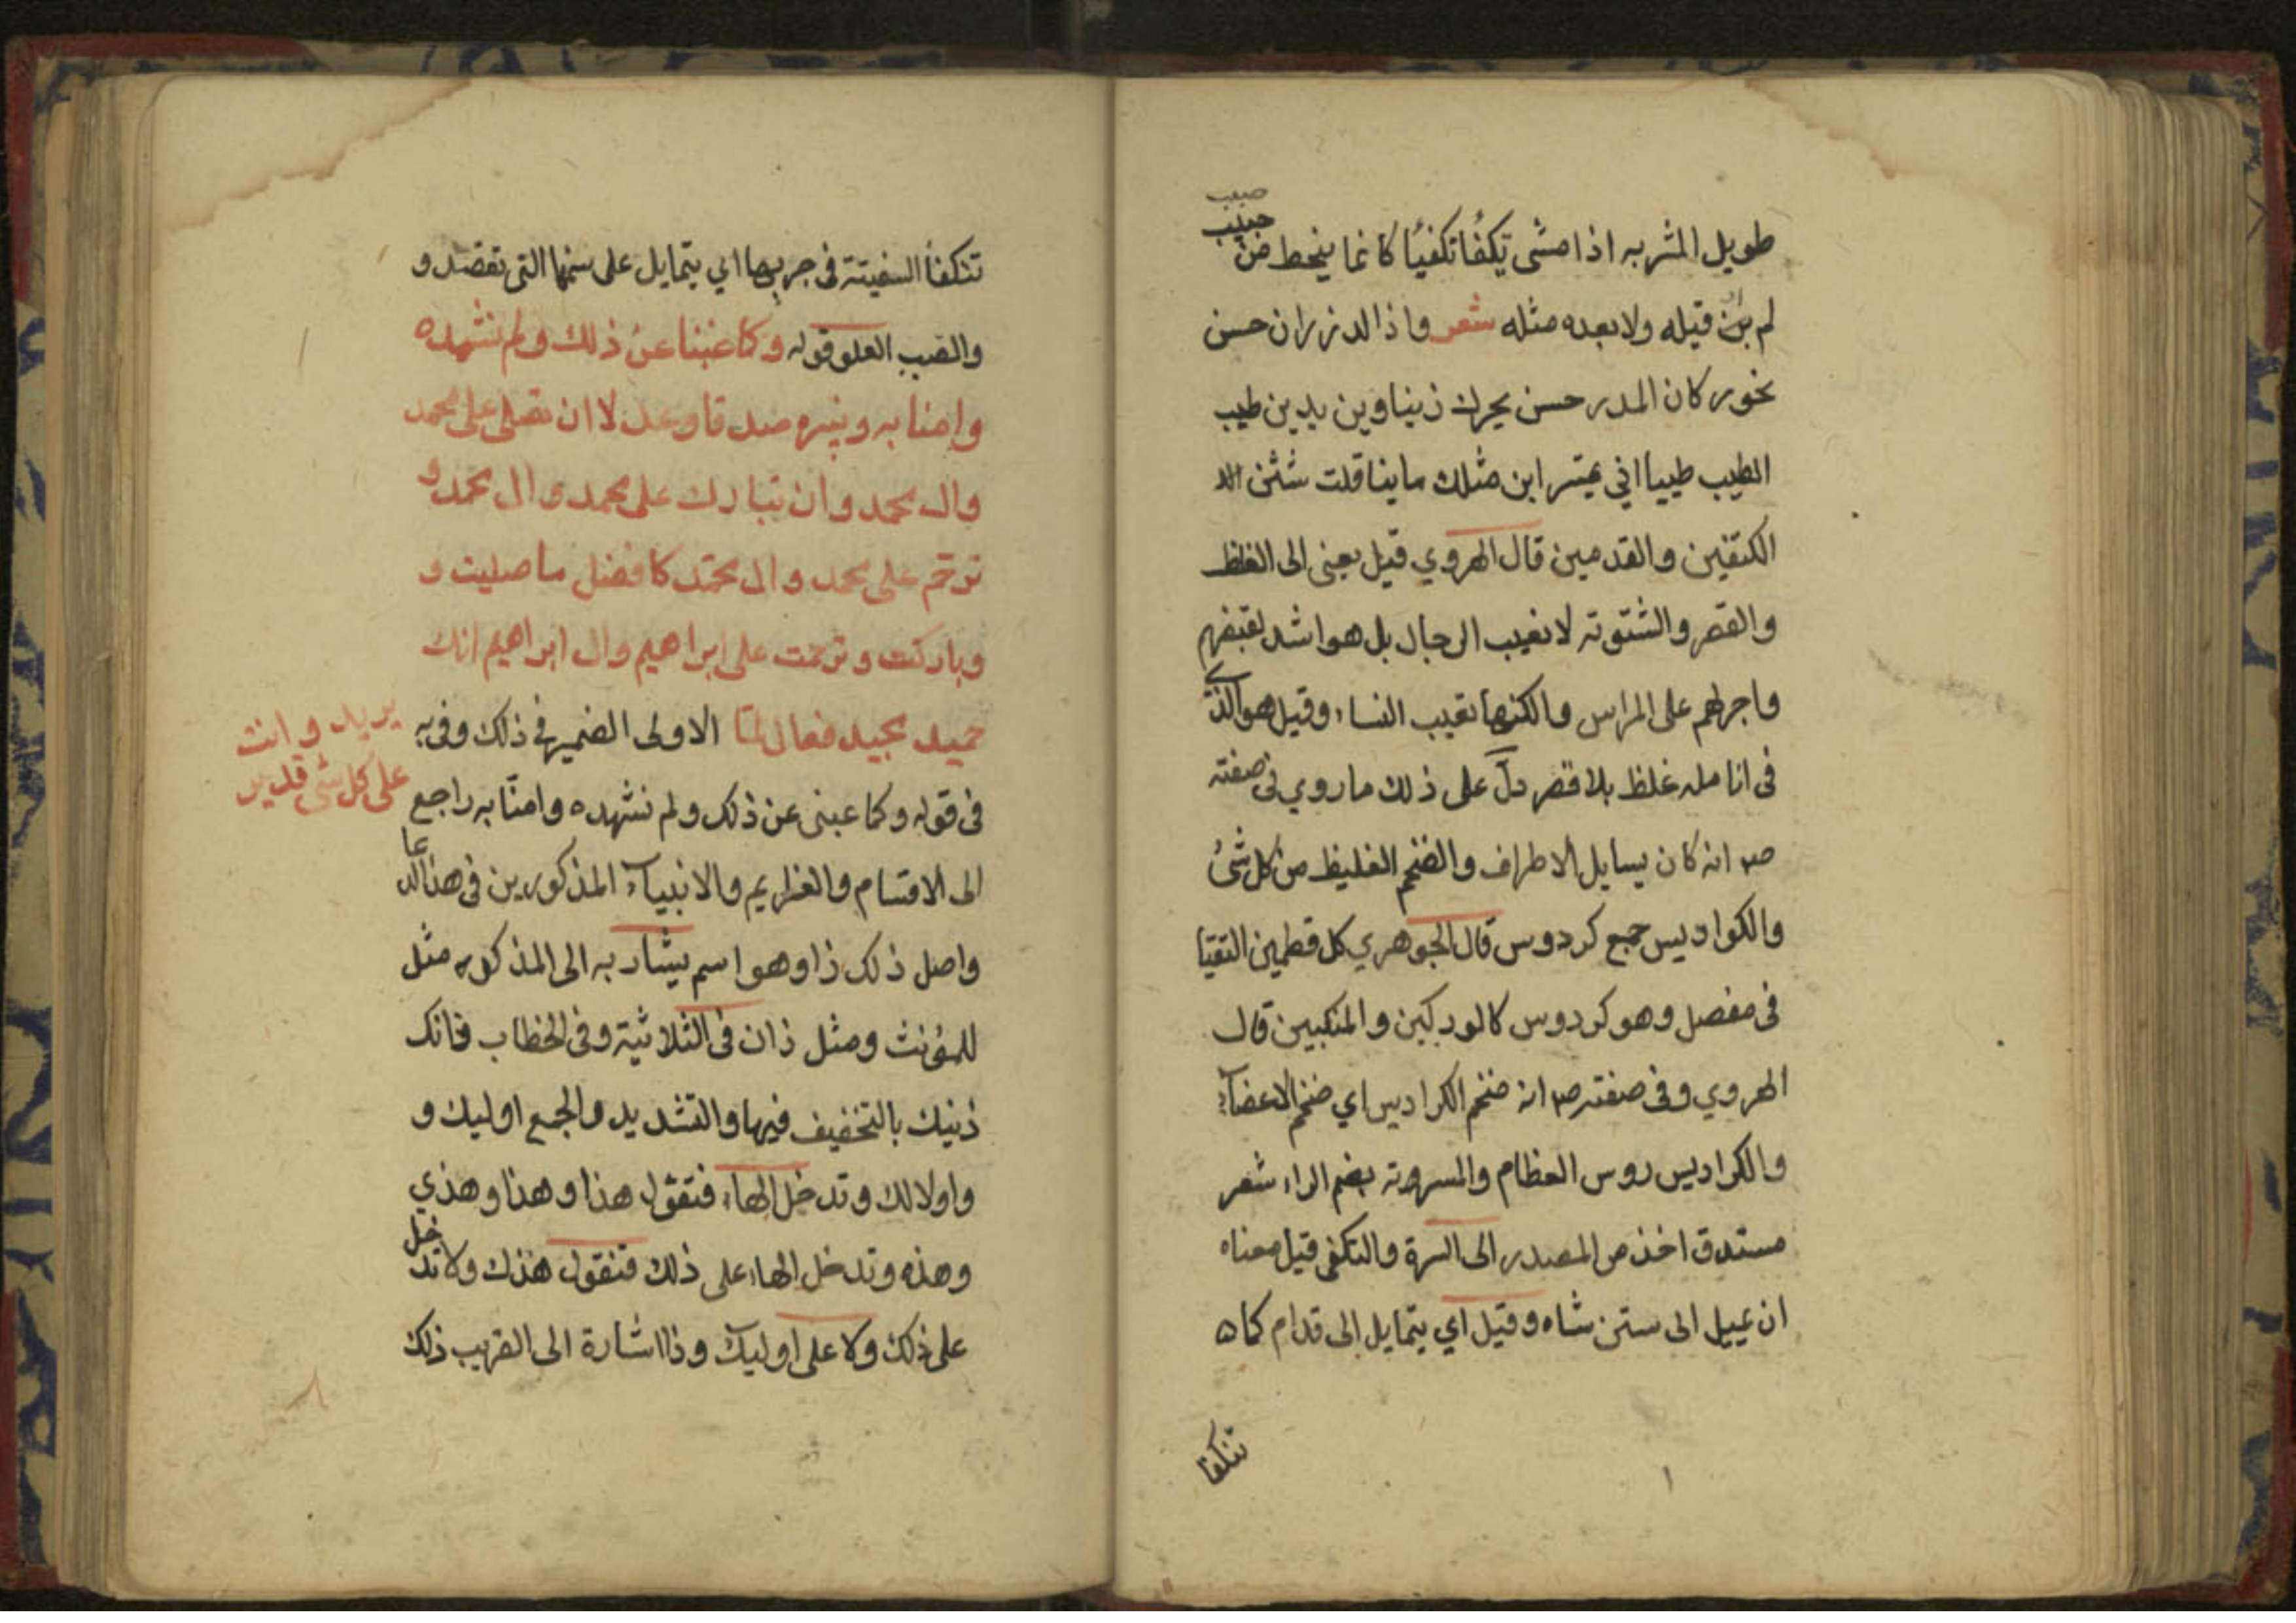 صبب
حبيب
طويل المشربه اذا مشى تكفأ تكفيئا كانما ينحط من
لم ير قبله ولا بعده مثله شعر واذا الدر زان حسن
نحور كان الدر حسن نحرك زينا وين يدين طيب
الطيب طيبا اني يمتسر ابن مثلك ماينا قلت شثن الا
الكتفين والقدمين قال الهروي قيل يعنى الى الغلظ
والقصر والشتوته لا نعيب الرجال بل هو اشد لقبضهم
واجرلهم على المراس والكنها تعيب النساء وقيل هو الذى
فى انامله غلظ بلا قصر دل على ذلك ماروي فى صفته
صم انه كان يسايل الاطراف والضخم الغليظ من كل شئ
والكواديس جمع كردوس قال الجوهري كل قطمين التقيا
فى مفصل وهو كردوس كالوركبين والمنكبين قال
الهروي وفى صفته صم انه ضخم الكراديس اي ضخم الاعضاء
والكراديس روس العظام والمسربة بضم الراء شعر
مستدق اخذ من المصدر الى السرة والتكفى قيل معناه
ان يميل الى سنن شاه وقيل اي يتمايل الى قدام كما
تتكفا
تتكفا السفينة فى جريها اي يتمايل على سننها التى تقصد و
والصبب العلو قوله وكما غبنا عن ذلك ولم نشهده
وامنا به ولم نره صدقا وعدلا ان تصلى على محمد
وال محمد وان تبارك على محمد وال محمد و
ترحم على محمد وال محمد كافضل ما صليت و
وباركت وترحمت على ابراهيم وال ابراهيم انك
حميد مجيد فعال لما الاولى الضمير فى ذلك وفى به
يريد وانت
على كل شى قدير
فى قوله وكما غبنى عن ذلك ولم نشهده وامنا به راجع
الى الاقسام والعزايم والانبياء المذكورين فى هذا الدعا
واصل ذلك ذا وهو اسم يشار به الى المذكور مثل
للمؤنث ومثل ذان فى الثلاثية وفى الخطاب فانك
ذنيك بالتخفيف فيها والتشديد والجمع اوليك و
واولالك وتدخل الهاء فتقول هذا وهذا وهذي
وهذه وتدخل الهاء على ذلك فتقول هذك ولا تدخل
على ذلك ولا على اوليك وذا اشارة الى القريب ذلك